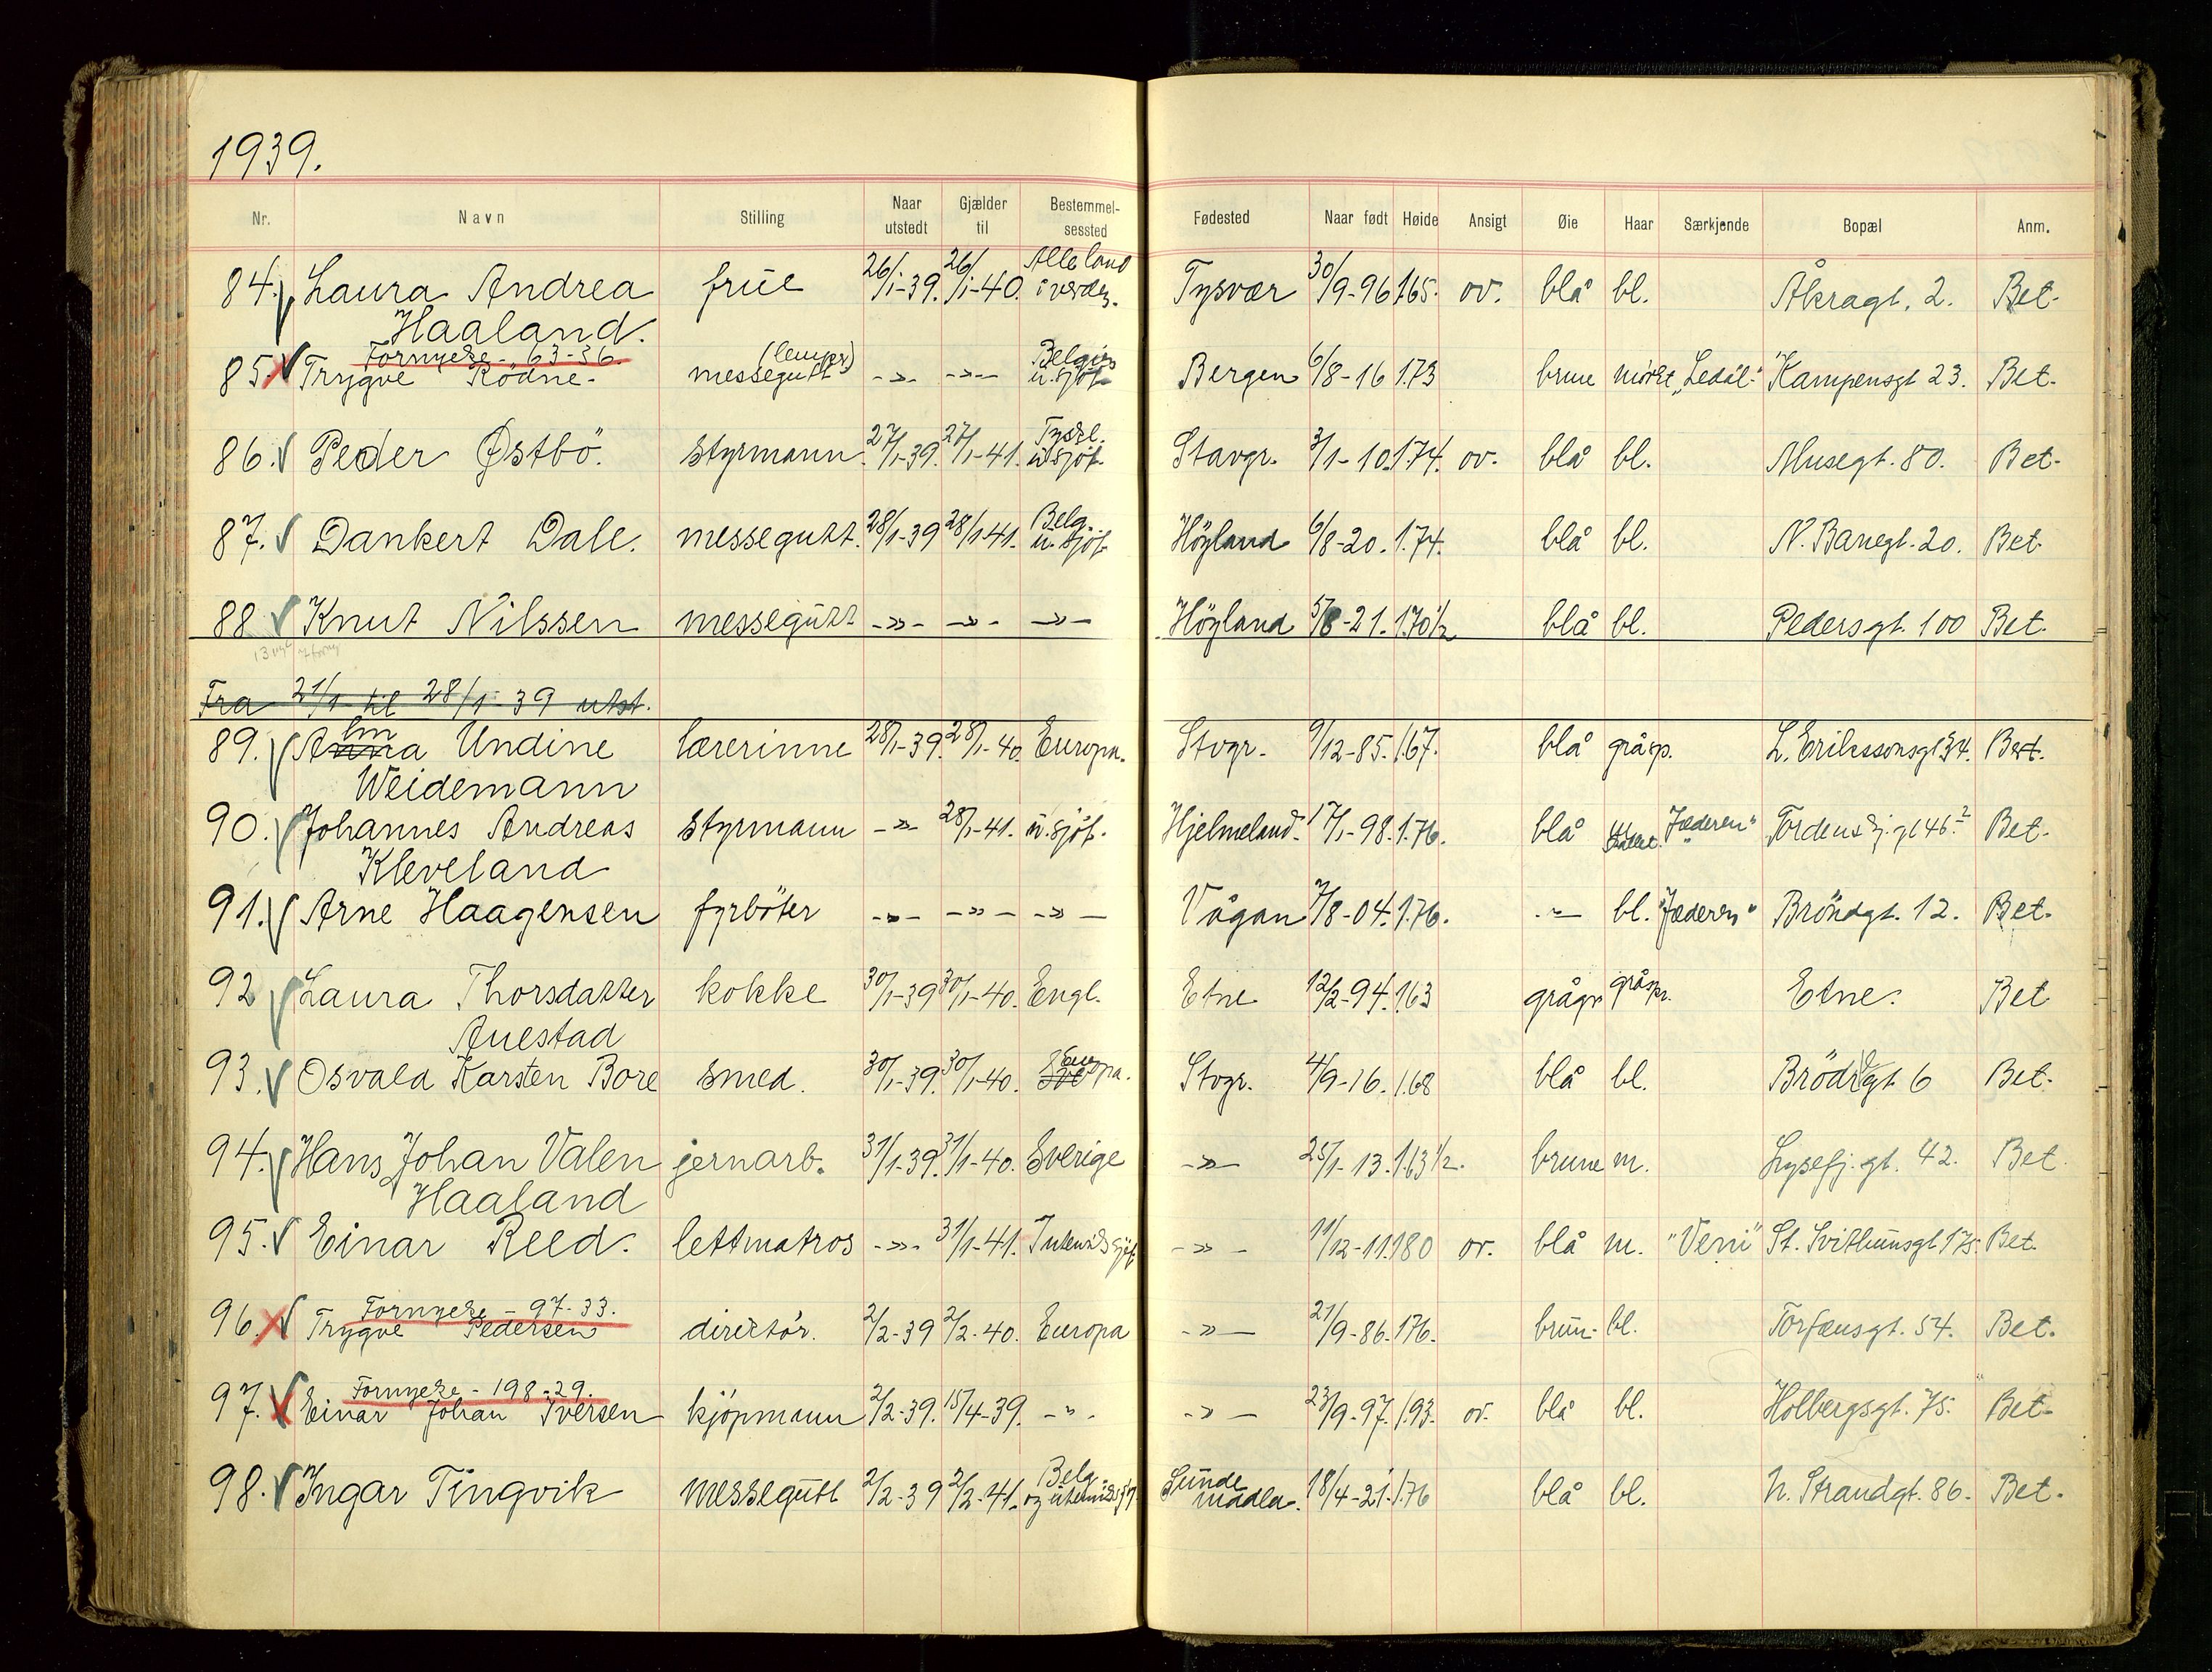 1939.
Nr. Navn Stilling Naar utstedt Gjælder til Bestemmel-sessted Fødested Naar født Høide Ansigt Øie Haar Særkjende Bopæl Anm.
84. Laura Andrea Haaland. frue 26/1-39. 26/1-40. Alle land i verden. Tysvær 30/9-96 1.65. ov. blå bl. Åkragt. 2. Bet.
Fornyelse - 63-36.
85. Trygve Rödne. messegutt (lemper) -"- -"- Belgien u. sjöf. Bergen 6/8-16 1.73 brune mörkt "Ledål" Kampensgt 23. Bet.
86. Peder Østbö. styrmann. 27/1-39. 27/1-41. Tyskl. u. sjöf. Stavgr. 3/1-10. 1.74. ov. blå bl. Musegt. 80. Bet.
87. Dankert Dale. messegutt. 28/1-39 28/1-41. Belg. u. sjöf. Höyland 6/8-20. 1.74. blå bl. N. Banegt. 20. Bet.
88 Knut Nilssen messegutt -"- -"- -"- Höyland 5/8-21. 1.70 1/2 blå bl. Pedersgt. 100 Bet.
Fra 21/1 til 28/1-39 utst.
89. Alma Undine Weidemann lærerinne 28/1-39. 28/1-40. Europa. Stvgr. 9/12-85. 1.67. blå gråsp. L. Erikssonsgt 34. Bet.
90. Johannes Andreas Kleveland styrmann -"- 28/1-41. u. sjöf. Hjelmeland. 17/1-98. 1.76. blå "Jæderen" Tordenskj.gt 46.² Bet.
91. Arne Haagensen fyrböter -"- -"- -"- Vågan 7/8-04. 1.76. -"- bl. "Jæderen" Bröndgt. 12. Bet.
92 Laura Thorsdatter Auestad kokke 30/1-39 30/1-40. Engl. Etne 12/2-94. 1.63 grågr gråspr. Etne. Bet
93. Osvald Karsten Bore smed. 30/1-39. 30/1-40. Europa. Stvgr. 4/9-16. 1.68 blå bl. Brödregt 6 Bet.
94. Hans Johan Valen Haaland jernarb. 31/1-39. 31/1-40. Sverige -"- 25/1-13. 1.63 1/2. brune m. Lysefj.gt. 42. Bet.
95. Einar Reed. lettmatros -"- 31/1-41. Inlandssjöf. -"- 11/12-11. 1.80 ov. blå m. "Veni" St. Svithunsgt 175. Bet.
Fornyelse - 97-33.
96. Trygve Pedersen direktör. 2/2-39 2/2-40. Europa -"- 21/9-86. 176. brun. bl. Torfæusgt. 54. Bet.
Fornyelse - 198-29.
97. Einar Johan Iversen kjöpmann 2/2-39. 15/4-39. -"- -"- 23/9-97. 1.93. ov. blå bl. Holbergsgt. 75. Bet.
98. Ingar Tingvik messegutt 2/2-39 2/2-41. Belg og utenrikssjöf. Sunde Madla. 18/4-21. 1.76 blå bl. N. Strandgt. 86. Bet.